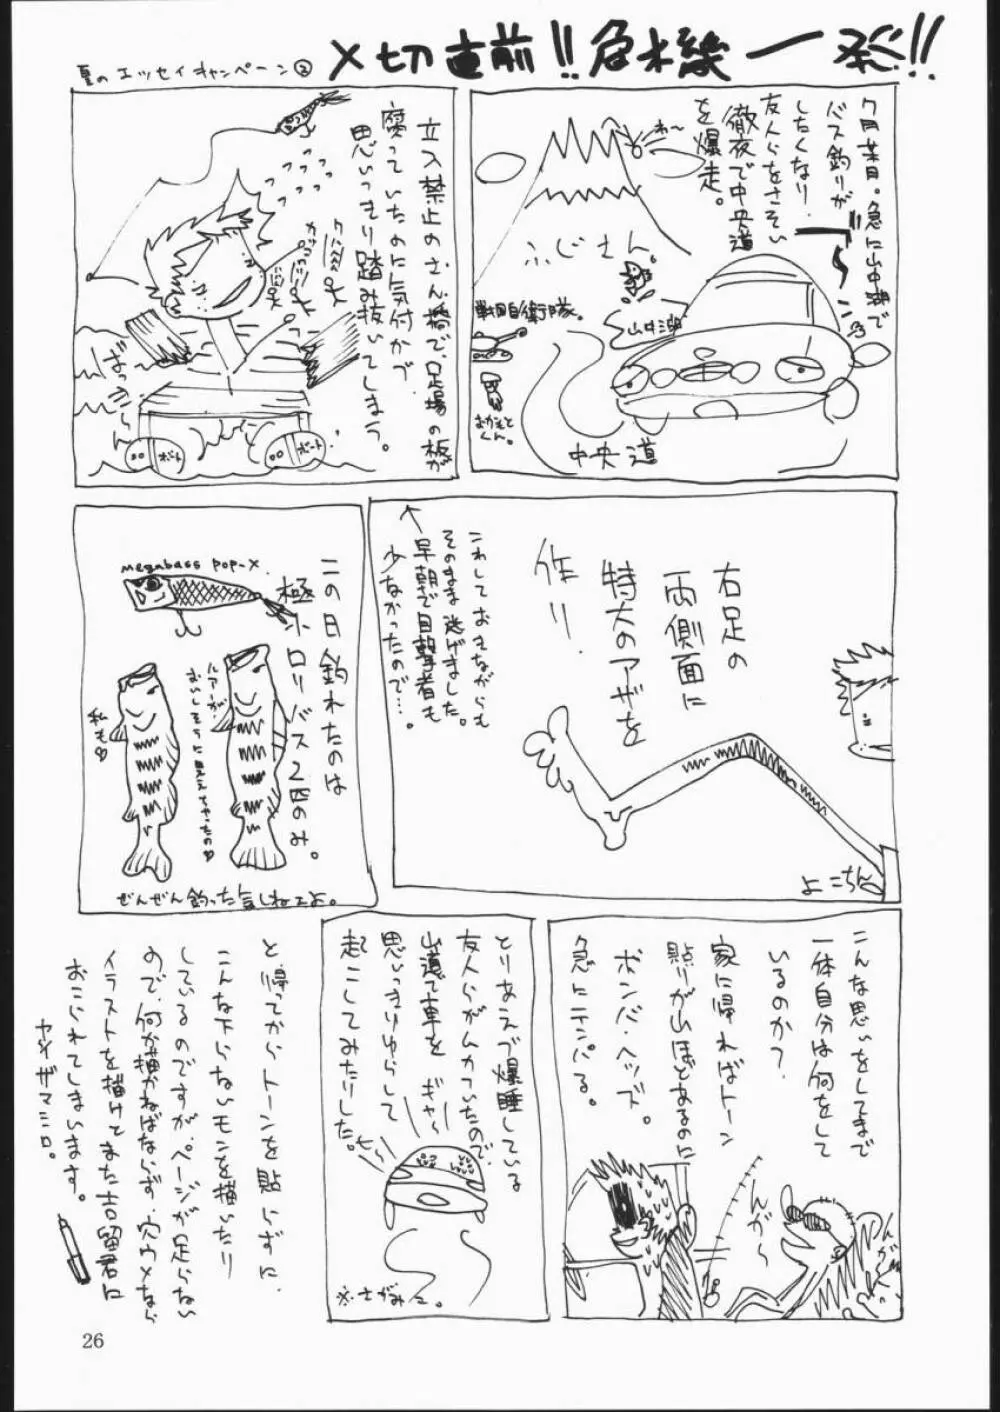 夏のエッセイキャンペーン②
〆切直前!!危機一発!!
7月某日。急に山中湖で
バス釣りが
したくなり、
友人らをさそい
徹夜で中央道
を爆走。
わ〜
ふじさん
山中湖
戦国自衛隊。
おかもと
くん。
中央道
立入禁止のさん橋で、足場の板が
腐っていたのに気付かで
思いっきり踏み抜いてしまう。
ボート
ボート
右足の
両側面に
特大のアザを
作り、
こわしておきながらも
そのまま逃げました。
↑早朝で目撃者も
少なかったので…。
よこちん
megabass pop-X.
この日釣れたのは
極小ロリバス2匹のみ。
ルアーが
おいしそうに見えちゃったの♡
私も♡
ぜんぜん釣った気しねェよ。
こんな思いをしてまで
一体自分は何をして
いるのか?
家に帰ればトーン
貼りが山ほどあるのに
ボンバ・ヘッズ。
急にテンパる。
んがー
んが
とりあえづ爆睡している
友人らがムカついたので
山道で車を
思いっきりゆらして
起こしてみたりした。
ギャー
※さがみこ。
と、帰ってからトーンを貼らずに
こんな下らないモンを描いたり
しているのですが、ページが足らない
ので、何か描かねばならず、穴ウメなら
イラストを描けとまた吉留君に
おこられてしまいます。
ヤノザマミロ。
26